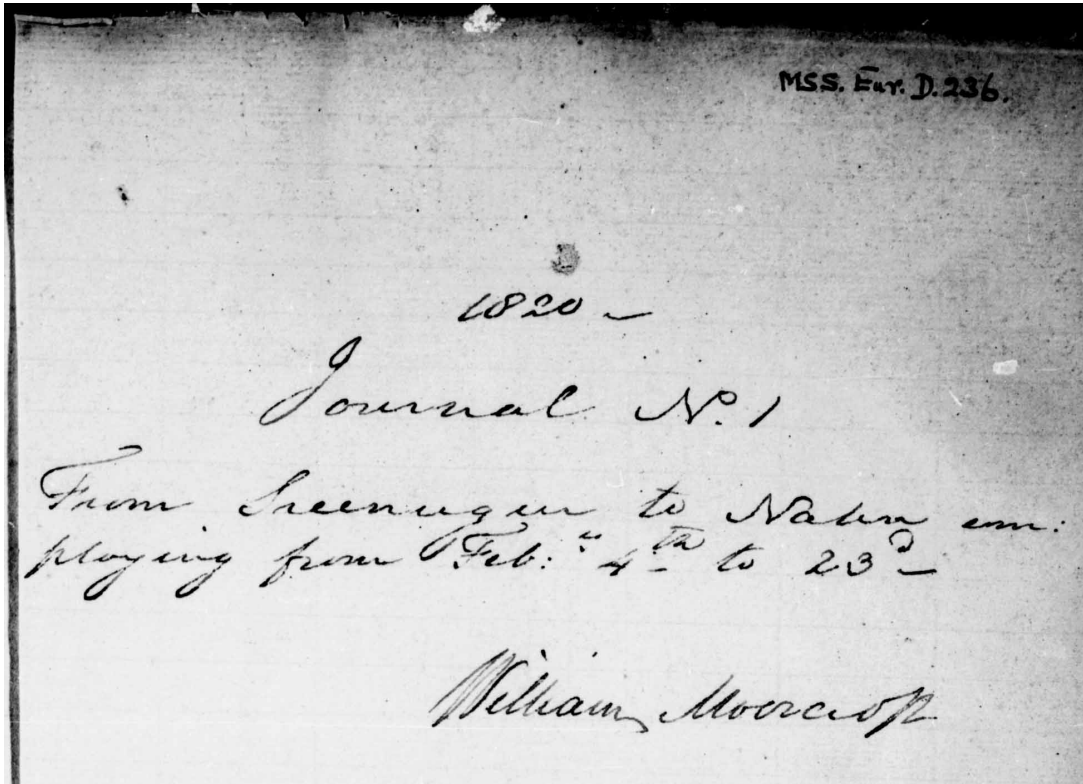 MSS. Eur. D. 236.
1820 –
Journal No. 1
From Sreenugur to Nahn em:
ploying from Feb:ʸ 4th to 23d –
William Moorcroft